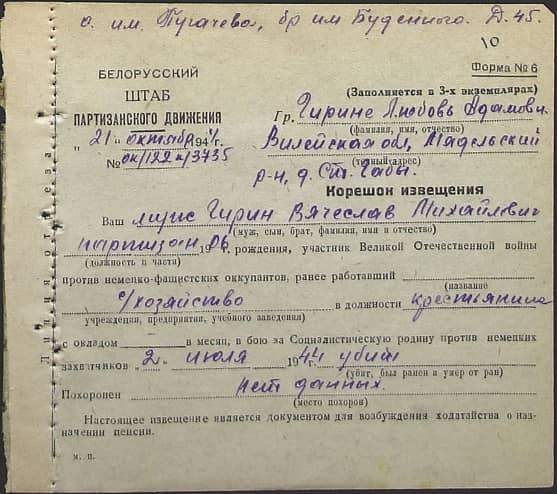 о. им. Пугачева, бр им Буденного. Д. 45.
10
Форма № 6
БЕЛОРУССКИЙ
ШТАБ
ПАРТИЗАНСКОГО ДВИЖЕНИЯ
„21“ октября 1944 г.
№ ок/122к/3735
(Заполняется в 3-х экземплярах)
Гр. Гирине Любовь Адамовн
(фамилия, имя, отчество)
Вилейская обл, Мядельский
(точный адрес)
р-н, д. Ст. Габы.
Корешок извещения
Ваш муж Гирин Вячеслав Михайлович
(муж, сын, брат, фамилия, имя и отчество)
партизан 1906. рождения, участник Великой Отечественной войны
(должность и части)
против немецко-фашистских оккупантов, ранее работавший
(название
с/хозяйство в должности крестьянина
учреждения, предприятия, учебного заведения)
с окладом в месяц, в бою за Социалистическую родину против немецких
захватчиков „2“ июля 1944 г. убит
(убит, был ранен и умер от ран)
Похоронен нет данных.
(место похорон)
Настоящее извещение является документом для возбуждения ходатайства о наз-
начении пенсии.
м. п.
Линия отреза